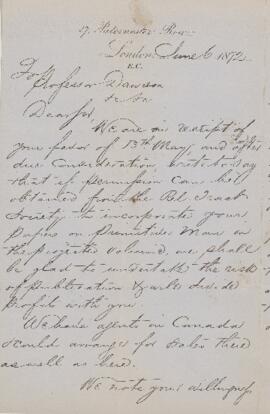 17, Paternoster Row
London, June 6 1872
E.C.
Professor Dawson
Dear Sir
We are in receipt of
your favor of 13th May, and after
due consideration, write to say
that if permission can be
obtained from the Rel. Tract
Society to incorporate your
papers on Primitive Man in
the projected volume, we shall
be glad to undertake the risk
of publication & will divide
profits with you.
We have agents in Canada
& could arrange for sales there
as well as here.
We note your willingness